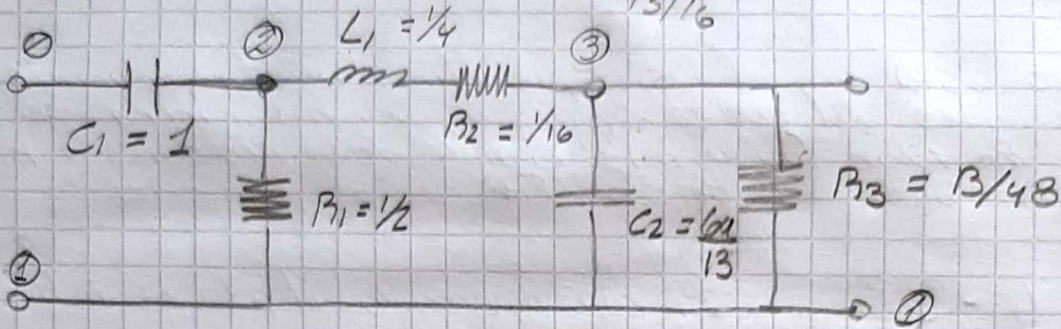 13/16
⓪ ② L₁ = 1/4 ③
C₁ = 1 R₂ = 1/16
R₁ = 1/2 C₂ = 64/13 R₃ = 13/48
① ①